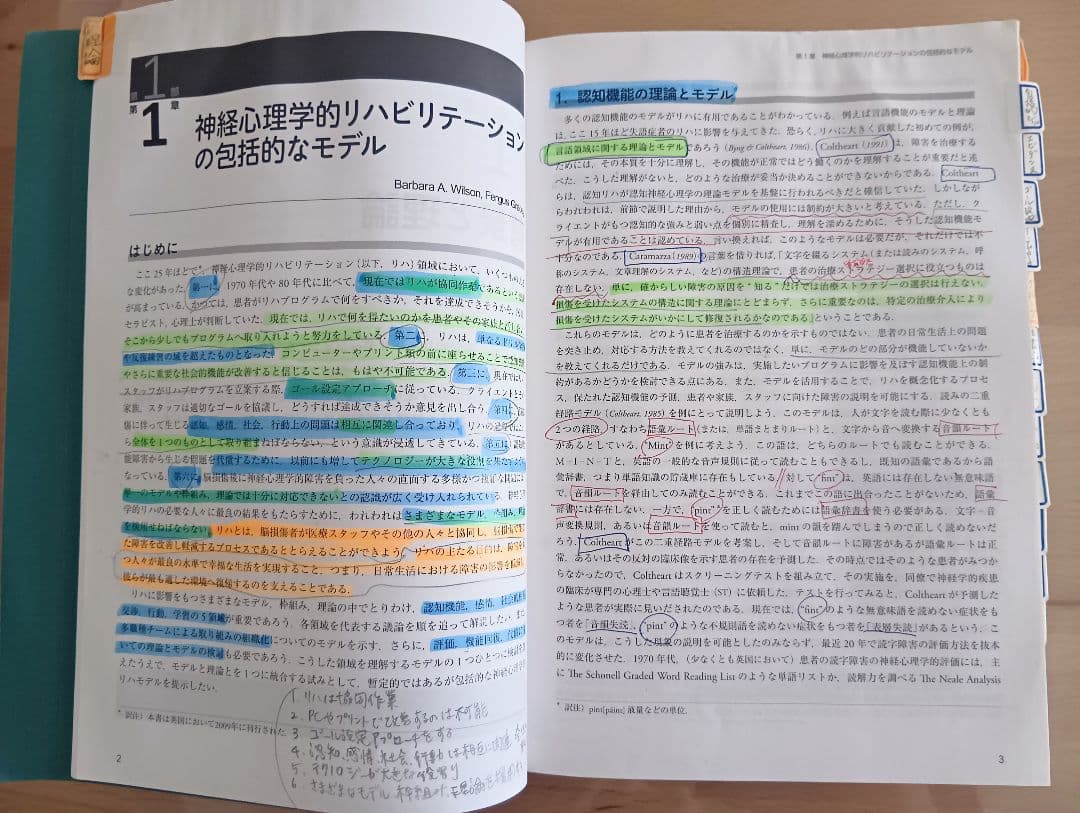 理論
第1部
第1章
神経心理学的リハビリテーション
の包括的なモデル
Barbara A. Wilson, Fergus
はじめに
ここ25年ほどで*, 神経心理学的リハビリテーション（以下, リハ）領域において, いくつもの
な変化があった. 第一に, 1970年代や80年代に比べて, 現在ではリハが協同作業であるという
が高まっている. かつては, 患者がリハプログラムで何をすべきか, それを達成できそうか,
セラピスト, 心理士が判断していた. 現在では, リハで何を得たいのかを患者やその家族と
そこから少しでもプログラムへ取り入れようと努力をしている. 第二に, リハは, 単なるドリル
や反復練習の域を超えたものとなった. コンピューターやプリント類の前に座らせることで
やさらに重要な社会的機能が改善すると信じることは, もはや不可能である. 第三に, 現在では,
スタッフがリハプログラムを立案する際, ゴール設定アプローチに従っている. クライエントと
家族, スタッフは適切なゴールを協議し, どうすれば達成できそうか意見を出し合う. 第四に
傷に伴って生じる認知, 感情, 社会, 行動上の問題は相互に関連し合っており, リハの
ら全体を1つのものとして取り組まねばならない, という意識が浸透してきている. 第五に,
能障害から生じる問題を代償するために, 以前にも増してテクノロジーが大きな役割を果た
なっている. 第六に, 脳損傷後に神経心理学的障害を負った人々の直面する多様かつ
単一のモデルや枠組み, 理論では十分に対応できないとの認識が広く受け入れられている.
学的リハの必要な人々に最良の結果をもたらすために, われわれはさまざまなモデル, 枠組み,
を使用せねばならない. リハとは, 脳損傷者が医療スタッフやその他の人々と協同し, 脳損傷
た障害を改善し軽減するプロセスであるととらえることができよう. リハの主たる目的は, 障害
つ人々が最良の水準で幸福な生活を実現すること, つまり, 日常生活における障害の影響を
彼らが最も適した環境へ復帰するのを支えることである.
リハに影響をもつさまざまなモデル, 枠組み, 理論の中でとりわけ, 認知機能, 感情, 社会
交渉, 行動, 学習の5領域が重要であろう. 各領域を代表する議論を順を追って解説したい. また
多職種チームによる取り組みの組織化についてのモデルを示す. さらに, 評価, 機能回復, 代償
いての理論とモデルの検討も必要であろう. こうした領域を理解するモデルの1つひとつに
えたうえで, モデルと理論とを1つに統合する試みとして, 暫定的ではあるが包括的な神経心理学
リハモデルを提示したい.
* 訳注）本書は英国において2009年に刊行された.
1. リハは協同作業
2. PCやプリントで改善するのは不可能
3 ゴール設定アプローチをする
4. 認知, 感情, 社会, 行動は相互に関連
5. テクノロジーが大きな役割り
6. さまざまなモデル, 枠組み, 理論を
2
第1章 神経心理学的リハビリテーションの包括的なモデル
1. 認知機能の理論とモデル
多くの認知機能のモデルがリハに有用であることがわかっている. 例えば言語機能のモデルと理論
は, ここ15年ほど失語症者のリハに影響を与えてきた. 恐らく, リハに大きく貢献した初めての例が,
言語領域に関する理論とモデルであろう（Byng & Coltheart, 1986). Coltheart (1991) は, 障害を治療する
ためには, その本質を十分に理解し, その機能が正常ではどう働くのかを理解することが重要だと述
べた. こうした理解がないと, どのような治療が妥当か決めることができないからである. Coltheart
らは, 認知リハが認知神経心理学の理論モデルを基盤に行われるべきだと確信していた. しかしなが
らわれわれは, 前節で説明した理由から, モデルの使用には制約が大きいと考えている. ただし, ク
ライエントがもつ認知的な強みと弱い点を個別に精査し, 理解を深めるために, そうした認知機能モ
デルが有用であることは認めている. 言い換えれば, このようなモデルは必要だが, それだけでは不
十分なのである. Caramazza (1989) の言葉を借りれば,「文字を綴るシステム（または読みのシステム, 呼
称のシステム, 文章理解のシステム, など）の構造理論で, 患者の治療ストラテジー選択に役立つものは
存在しない. 単に, 確からしい障害の原因を“知る”だけでは治療ストラテジーの選択は行えない.
損傷を受けたシステムの構造に関する理論にとどまらず, さらに重要なのは, 特定の治療介入により
損傷を受けたシステムがいかにして修復されるかなのである」ということである.
これらのモデルは, どのように患者を治療するのかを示すものではない. 患者の日常生活上の問題
を突き止め, 対応する方法を教えてくれるのではなく, 単に, モデルのどの部分が機能していないか
を教えてくれるだけである. モデルの強みは, 実施したいプログラムに影響を及ぼす認知機能上の制
約があるかどうかを検討できる点にある. また, モデルを活用することで, リハを概念化するプロセ
ス, 保たれた認知機能の予測, 患者や家族, スタッフに向けた障害の説明を可能にする. 読みの二重
経路モデル (Coltheart, 1985) を例にとって説明しよう. このモデルは, 人が文字を読む際に少なくとも
2つの経路, すなわち語彙ルート（または, 単語まとまりルート）と, 文字から音へ変換する音韻ルート
があるとしている. “Mint”を例に考えよう. この語は, どちらのルートでも読むことができる.
M－I－N－Tと, 英語の一般的な音声規則に従って読むこともできるし, 既知の語彙であるから語
彙辞書, つまり単語知識の貯蔵庫に存在もしている. 対して“fint”は, 英語には存在しない無意味語
で, 音韻ルートを経由してのみ読むことができる. これまでこの語に出合ったことがないため, 語彙
辞書には存在しない. 一方で, “pint”*を正しく読むためには語彙辞書を使う必要がある. 文字－音
声変換規則, あるいは音韻ルートを使って読むと, mintの韻を踏んでしまうので正しく読めないだ
ろう. Coltheartがこの二重経路モデルを考案し, そして音韻ルートに障害があるが語彙ルートは正
常, あるいはその反対の臨床像を示す患者の存在を予測した. その時点ではそのような患者がみつか
らなかったので, Coltheartはスクリーニングテストを組み立て, その実施を, 同僚で神経学的疾患
の臨床が専門の心理士や言語聴覚士 (ST) に依頼した. テストを行ってみると, Coltheartが予測し
たような患者が実際に見いだされたのである. 現在では, “fint”のような無意味語を読めない症状をも
つ者を「音韻失読」, “pint”のような不規則語を読めない症状をもつ者を「表層失読」があるという. こ
のモデルは, こうした現象の説明を可能としたのみならず, 最近20年で読字障害の評価方法を抜本
的に変化させた. 1970年代,（少なくとも英国において）患者の読字障害の神経心理学的評価には, 主
に The Schonell Graded Word Reading List のような単語リストか, 読解力を調べる The Neale Analysis
* 訳注）pint[páint] 液量などの単位.
3